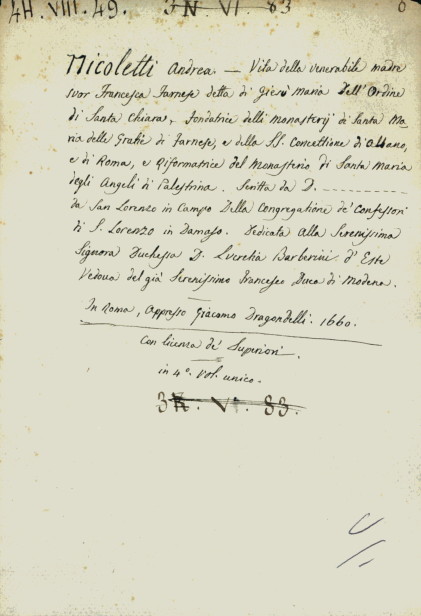 4H. VIII. 49. 3N. VI. 83
Nicoletti Andrea. — Vita della venerabile madre
suor Francesca Farnese detta di Giesù Maria Dell'Ordine
di Santa Chiara, Fondatrice delli Monasterij di Santa Ma-
ria delle Gratie di Farnese, e della SS. Concettione di Albano,
e di Roma, e Riformatrice del Monasterio di Santa Maria
degli Angeli di Palestrina. Scritta da D. - - - - - - - - -
da San Lorenzo in Campo Della Congregatione de' Confessori
di S. Lorenzo in Damaso. Dedicata Alla Serenissima
Signora Duchessa D. Lucretia Barberini d'Este
Vedova del già Serenissimo Francesco Duca di Modena.
In Roma, Appresso Giacomo Dragondelli. 1660.
Con licenza de' Superiori.
in 4.° vol. unico.
VI. 83.